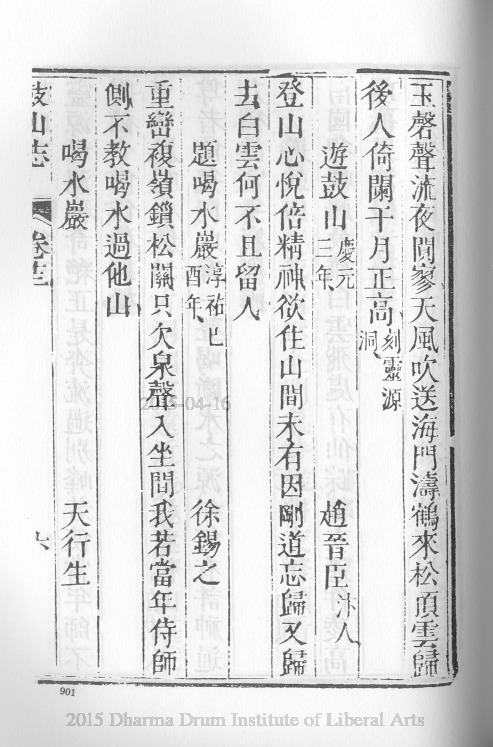 玉磬聲流夜閴寥天風吹送海門濤鶴來松頂雲歸
後人倚闌干月正高刻靈源洞
遊鼓山慶元三年 趙晉臣汴人
登山心悅倍精神欲住山間未有因剛道忘歸又歸
去白雲何不且留人
題喝水巖淳祐己酉年 徐錫之
重巒複嶺鎖松關只欠泉聲入坐間我若當年侍師
側不教喝水過他山
喝水巖 天行生
鼓山志 卷十三 六
901
2015-04-16
2015 Dharma Drum Institute of Liberal Arts